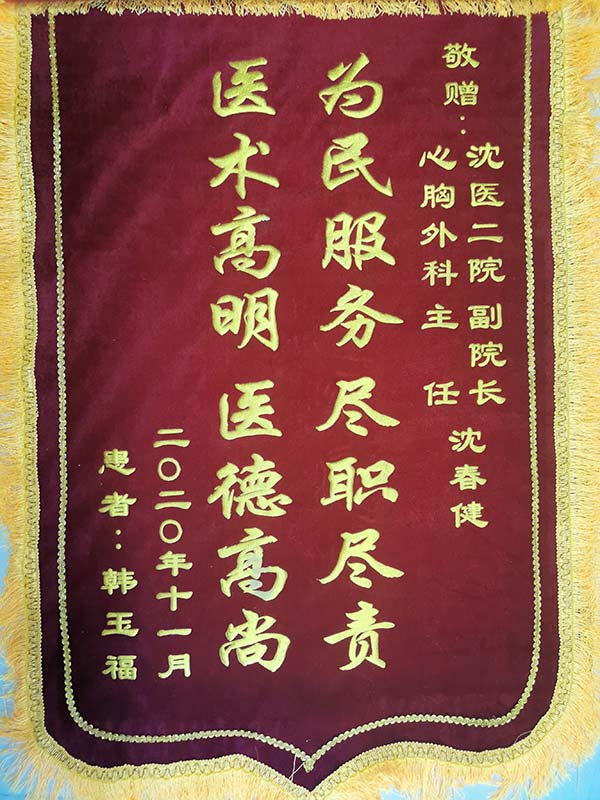 敬赠：
沈医二院副院长
心胸外科主任
沈春健
为民服务尽职尽责
医术高明医德高尚
二〇二〇年十一月
患者：韩玉福